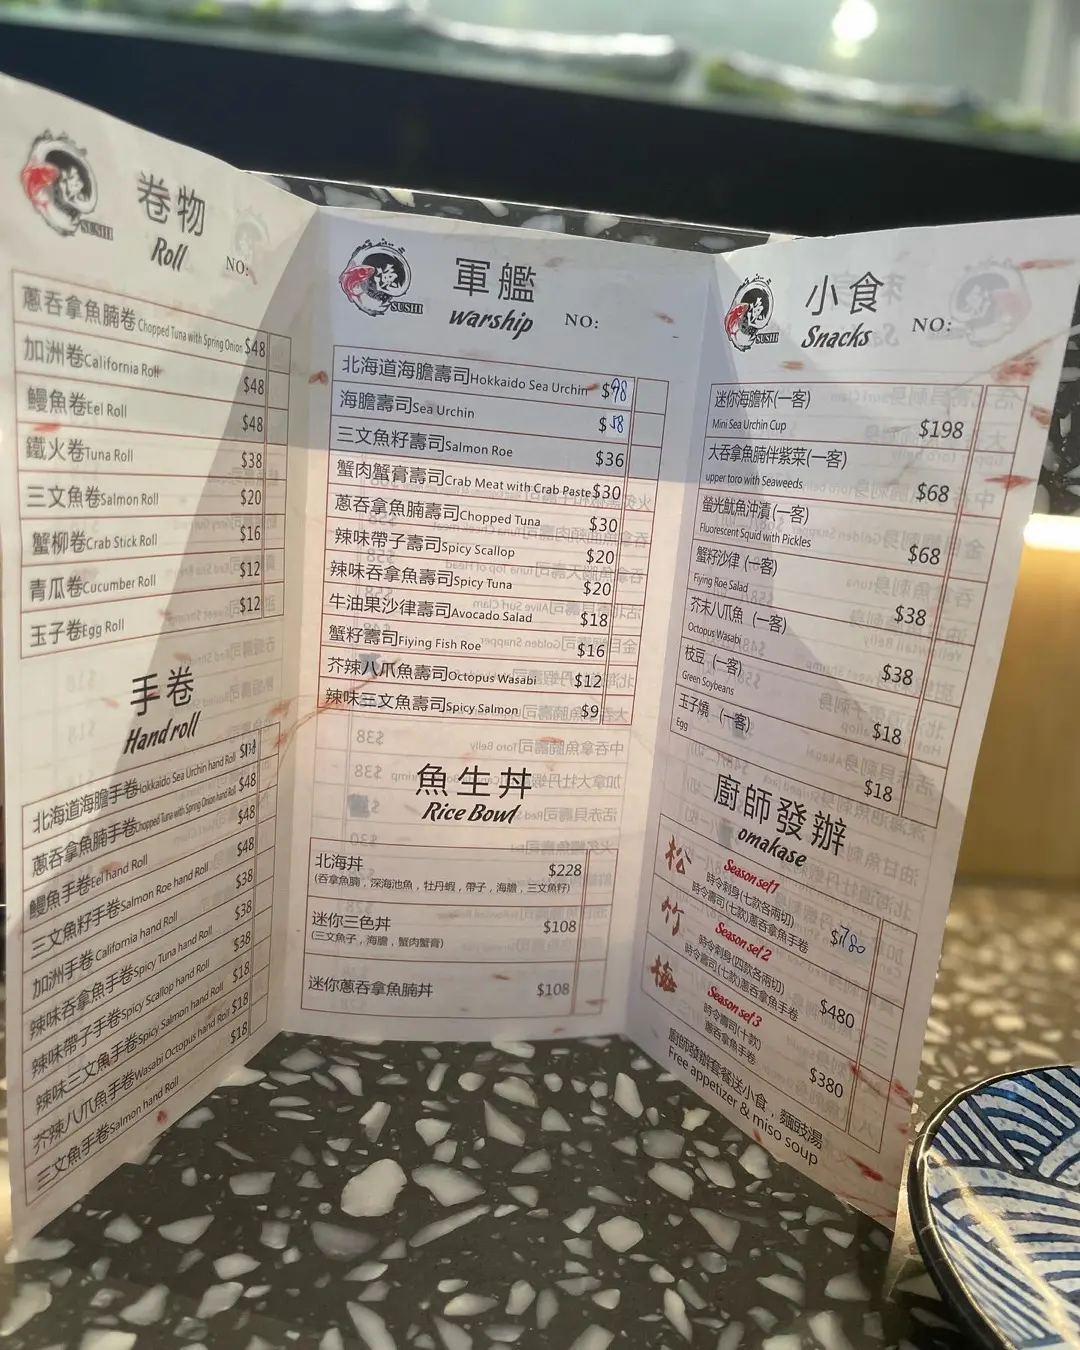 漁
SUSHI
卷物
Roll
NO:
蔥吞拿魚腩卷Chopped Tuna with Spring Onion $48
加洲卷California Roll $48
鰻魚卷Eel Roll $48
鐵火卷Tuna Roll $38
三文魚卷Salmon Roll $20
蟹柳卷Crab Stick Roll $16
青瓜卷Cucumber Roll $12
玉子卷Egg Roll $12
手卷
Hand roll
北海道海膽手卷Hokkaido Sea Urchin hand Roll
蔥吞拿魚腩手卷Chopped Tuna with Spring Onion hand Roll $48
鰻魚手卷Eel hand Roll $48
三文魚籽手卷Salmon Roe hand Roll $48
加洲手卷California hand Roll $38
辣味吞拿魚手卷Spicy Tuna hand Roll $38
辣味帶子手卷Spicy Scallop hand Roll $38
辣味三文魚手卷Spicy Salmon hand Roll $18
芥辣八爪魚手卷Wasabi Octopus hand Roll $18
三文魚手卷Salmon hand Roll $18
漁
SUSHI
軍艦
warship
NO:
北海道海膽壽司Hokkaido Sea Urchin $98
海膽壽司Sea Urchin $58
三文魚籽壽司Salmon Roe $36
蟹肉蟹膏壽司Crab Meat with Crab Paste $30
蔥吞拿魚腩壽司Chopped Tuna $30
辣味帶子壽司Spicy Scallop $20
辣味吞拿魚壽司Spicy Tuna $20
牛油果沙律壽司Avocado Salad $18
蟹籽壽司Fiying Fish Roe $16
芥辣八爪魚壽司Octopus Wasabi $12
辣味三文魚壽司Spicy Salmon $9
魚生丼
Rice Bowl
北海丼 $228
(吞拿魚腩，深海池魚，牡丹蝦，帶子，海膽，三文魚籽)
迷你三色丼 $108
(三文魚子，海膽，蟹肉蟹膏)
迷你蔥吞拿魚腩丼 $108
漁
SUSHI
小食
Snacks
NO:
迷你海膽杯(一客)
Mini Sea Urchin Cup $198
大吞拿魚腩伴紫菜(一客)
upper toro with Seaweeds $68
螢光魷魚沖漬(一客)
Fluorescent Squid with Pickles $68
蟹籽沙律 (一客)
Fiying Roe Salad $38
芥末八爪魚 (一客)
Octopus Wasabi $38
枝豆 (一客)
Green Soybeans $18
玉子燒 (一客)
Egg $18
廚師發辦
omakase
松 Season set1
時令刺身(七款各兩切)
時令壽司(七款)蔥吞拿魚手卷 $780
竹 Season set 2
時令刺身(四款各兩切)
時令壽司(七款)蔥吞拿魚手卷 $480
梅 Season set 3
時令壽司(十款)
蔥吞拿魚手卷 $380
廚師發辦套餐送小食，麵豉湯
Free appetizer & miso soup